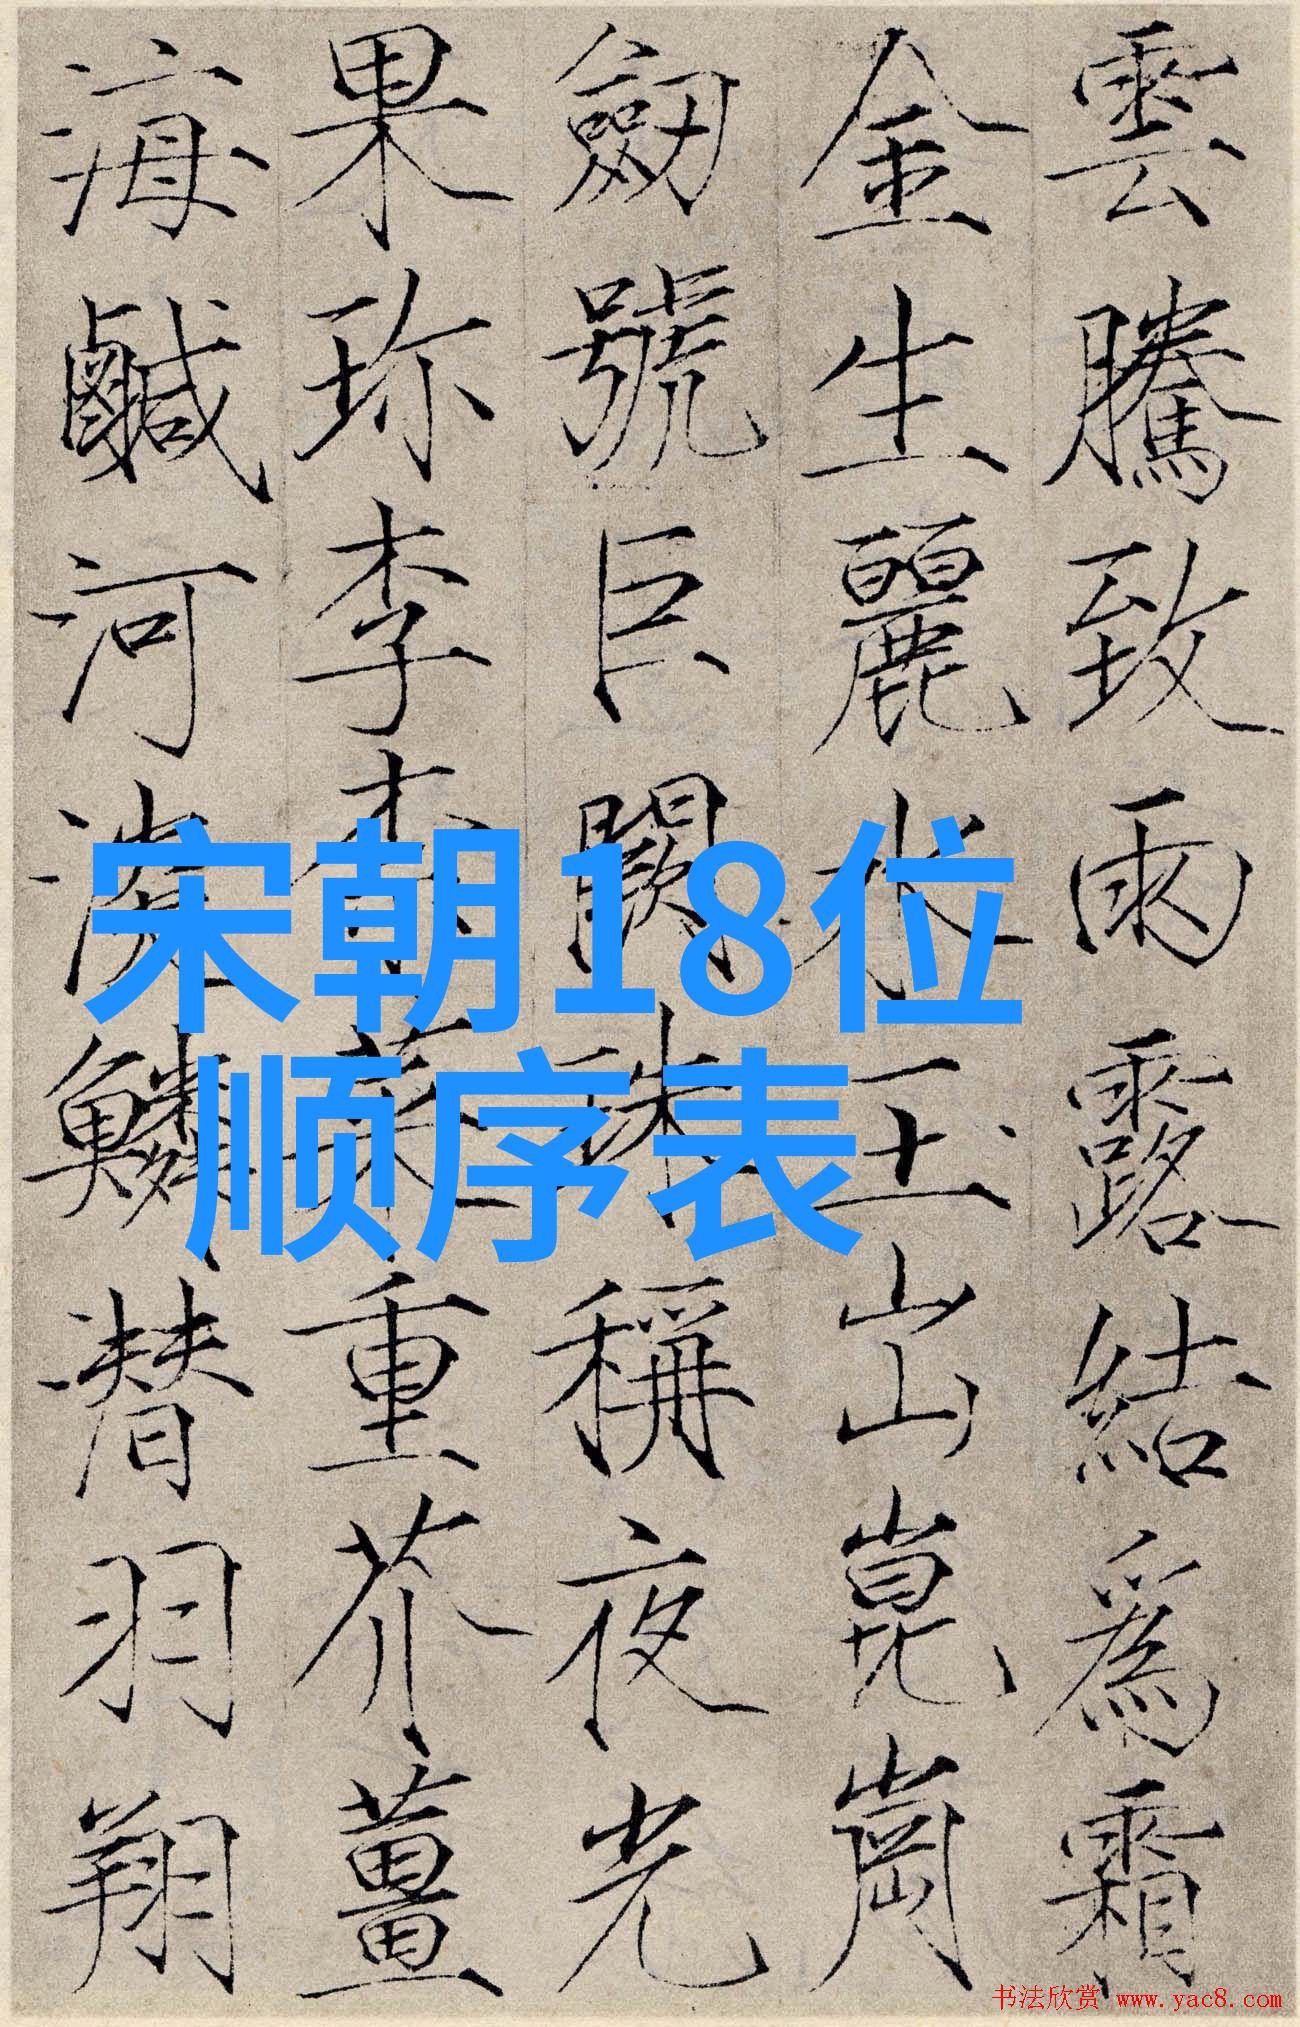 雲騰致雨露結為霜
金生麗水玉出崑崗
劒號巨闕珠稱夜光
果珍李柰菜重芥薑
海鹹河淡鱗潜羽翔
宋朝18位
顺序表
书法欣赏 www.yac8.com